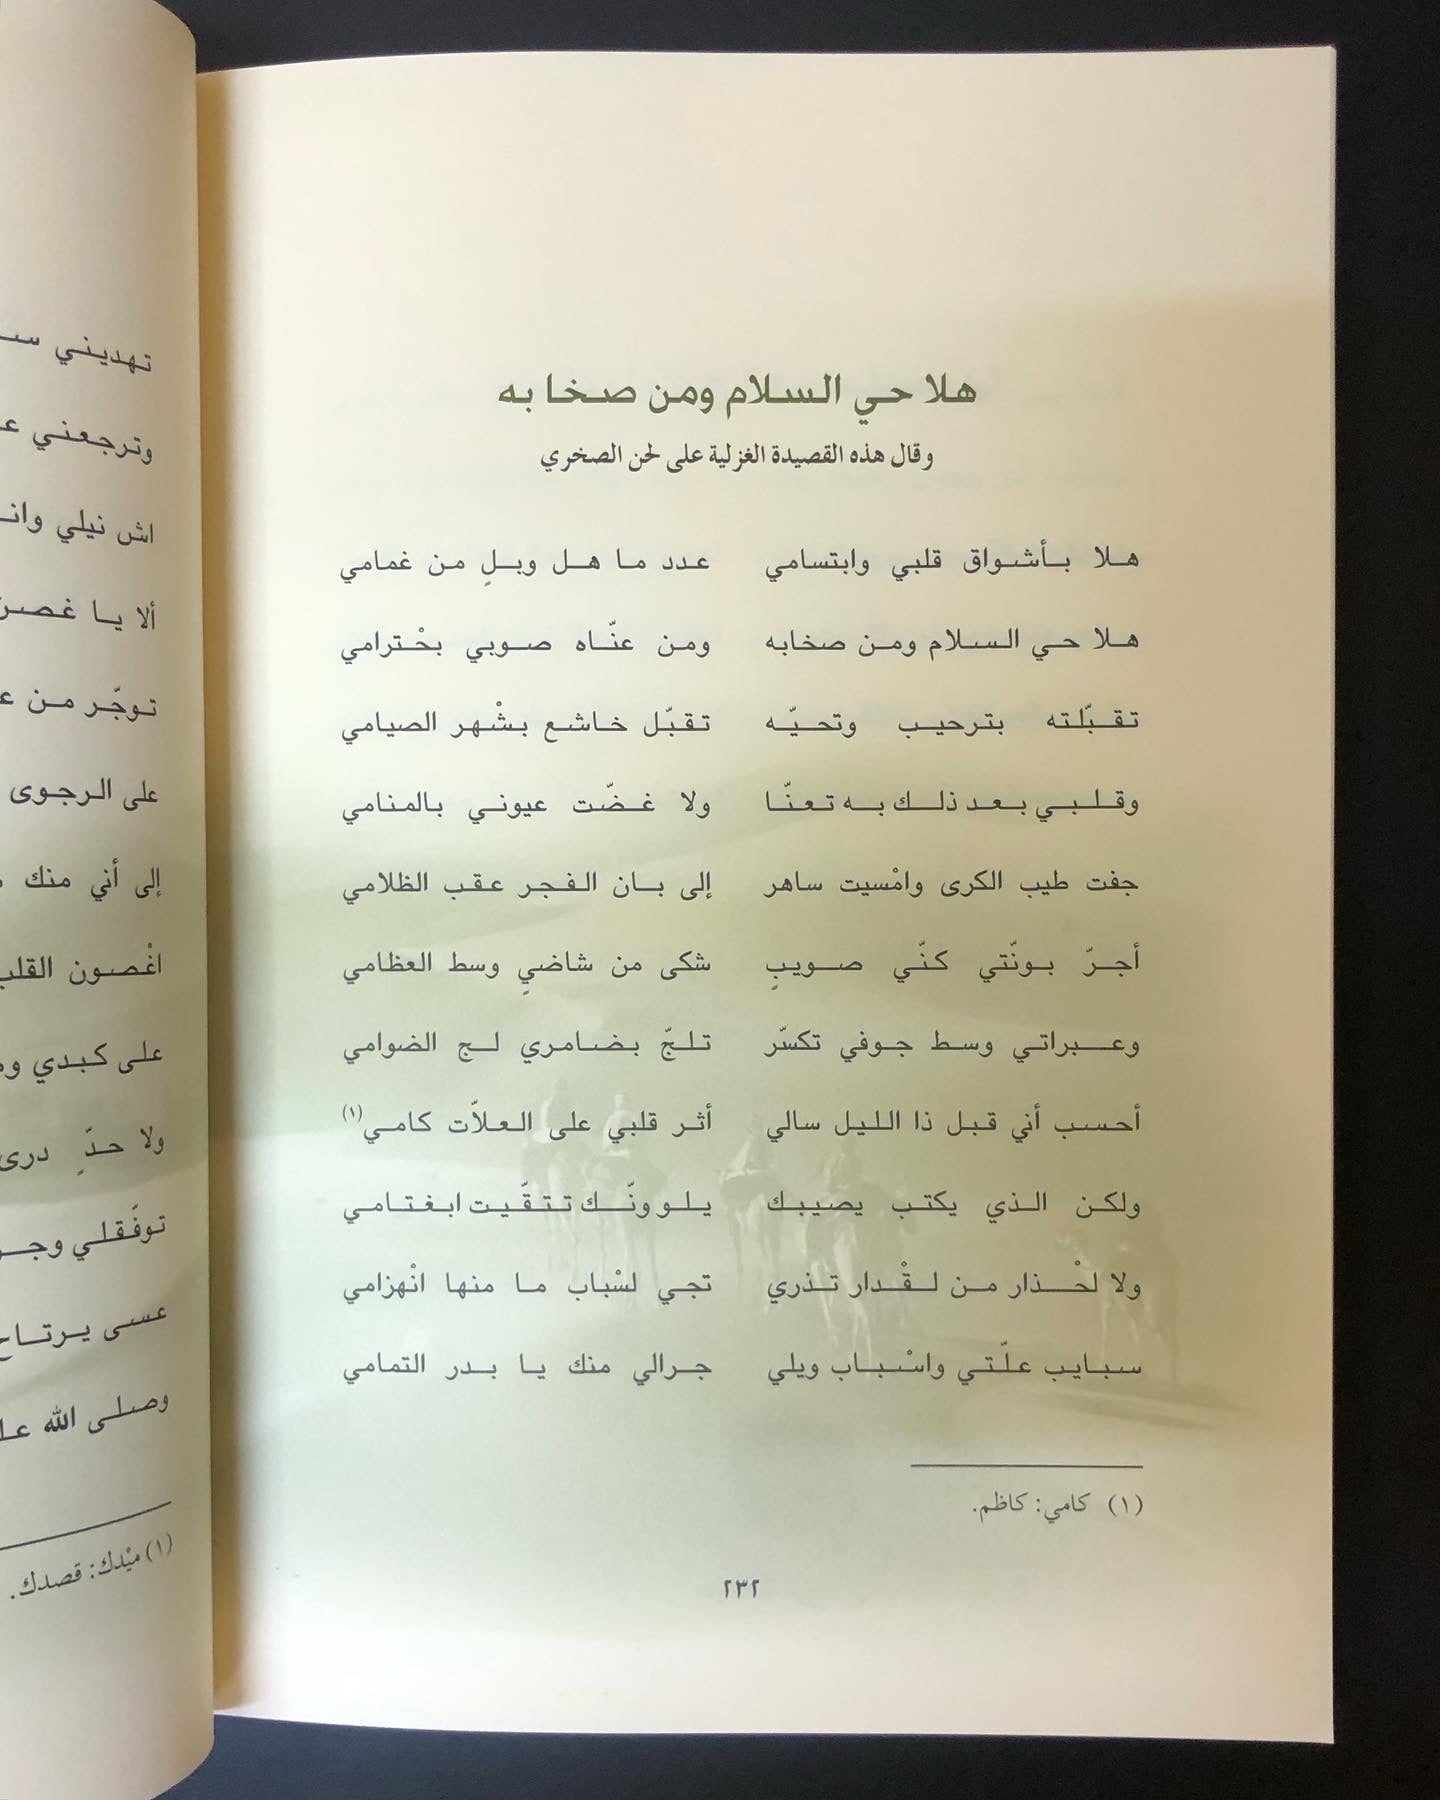 هلا حي السلام ومن صخا به
وقال هذه القصيدة الغزلية على لحن الصخري
هلا بأشواق قلبي وابتسامي عدد ما هل وبلٍ من غمامي
هلا حي السلام ومن صخابه ومن عنّاه صوبي بحْترامي
تقبّلته بترحيب وتحيّه تقبّل خاشع بشْهر الصيامي
وقلبي بعد ذلك به تعنّا ولا غضّت عيوني بالمنامي
جفت طيب الكرى وامْسيت ساهر إلى بان الفجر عقب الظلامي
أجرّ بونّتي كنّي صويبٍ شكى من شاضيٍ وسط العظامي
وعبراتي وسط جوفي تكسّر تلجّ بضامري لج الضوامي
أحسب أني قبل ذا الليل سالي أثر قلبي على العلاّت كامي(١)
ولكن الذي يكتب يصيبك يلو ونّك تتقّيت ابغتامي
ولا لحْذار من لقْدار تذري تجي لسْباب ما منها انْهزامي
سبايب علّتي واسْباب ويلي جرالي منك يا بدر التمامي
(١) كامي: كاظم.
٢٣٢
تهديني
وترجعني
اش نيلي
ألا يا غصن
توجّر من
على الرجوى
إلى أني منك
اغْصون القلب
على كبدي
ولا حدٍّ درى
توفّقلي
عسى يرتاح
وصلى الله
(١) ميْدك: قصدك.